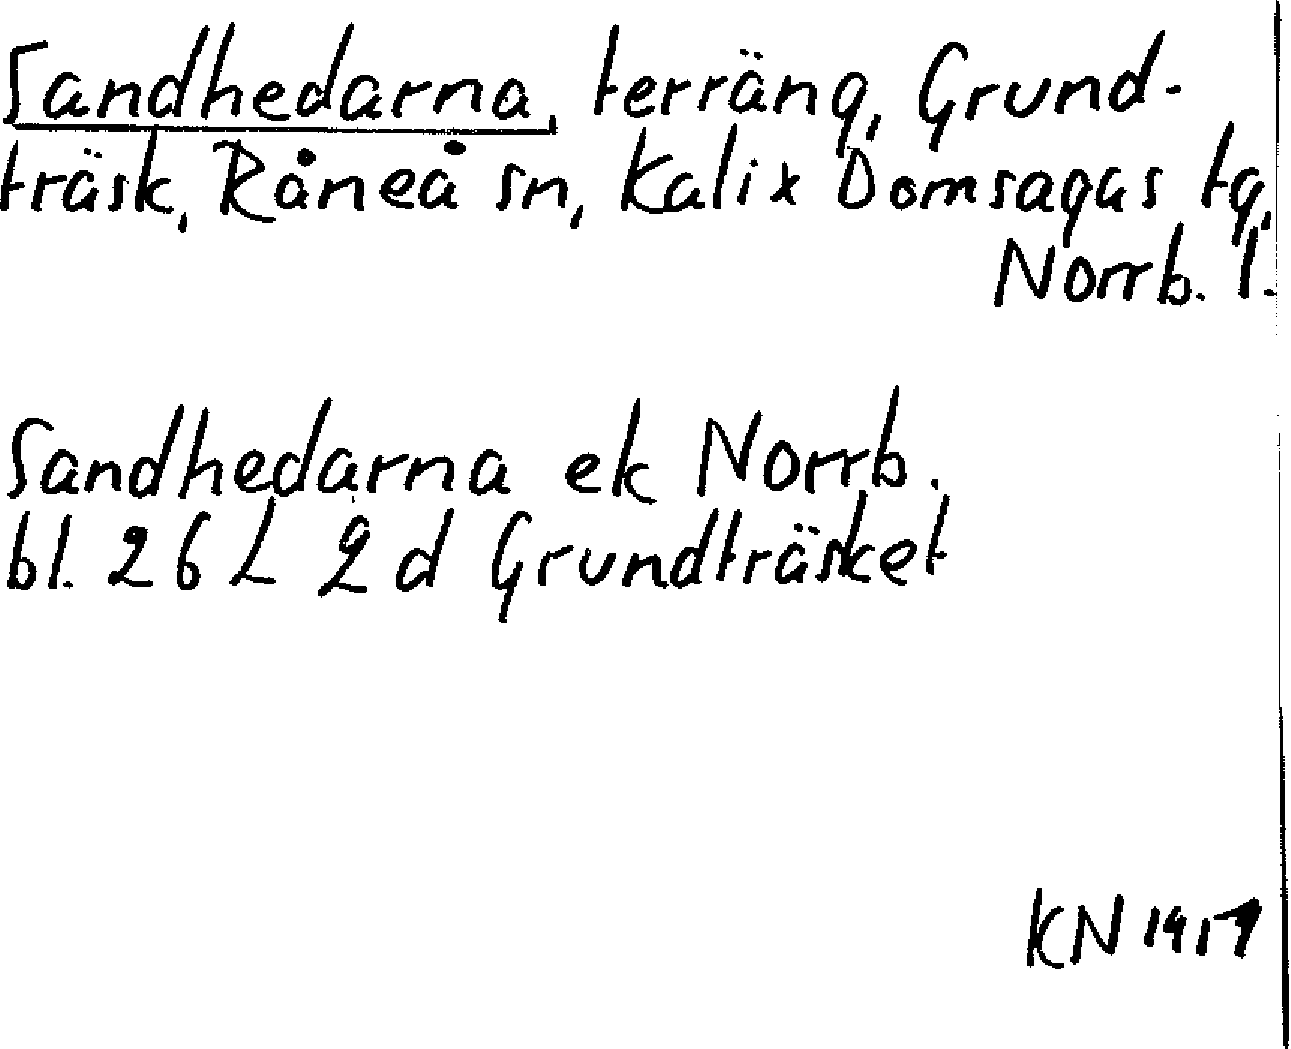 Sandhedarna, terräng, Grund-
träsk, Råneå sn, Kalix Domsagas tg,
Norrb. l.
Sandhedarna ek Norrb.
bl. 26 L 2 d Grundträsket
KN